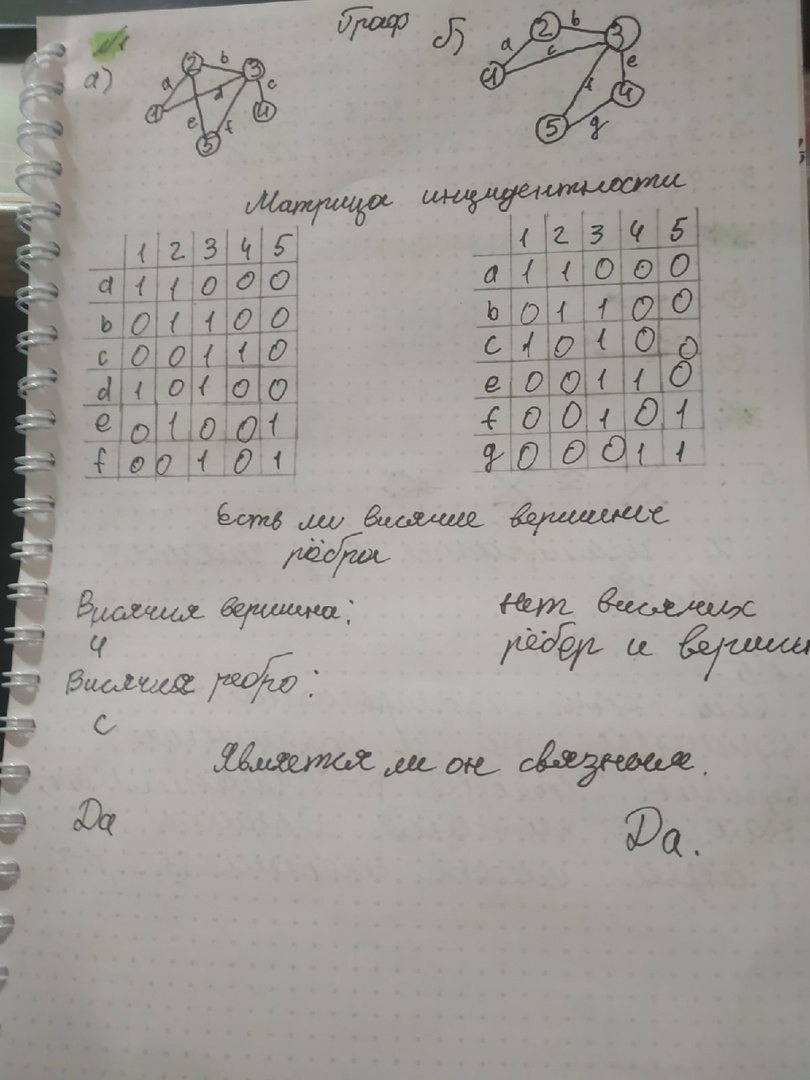 №1
Граф
а)
б)
2 b 3
a d c
1 e f 4
5
2 b 3
a c e
1 f 4
5 g
Матрица инцидентности
1 2 3 4 5
a 1 1 0 0 0
b 0 1 1 0 0
c 0 0 1 1 0
d 1 0 1 0 0
e 0 1 0 0 1
f 0 0 1 0 1
1 2 3 4 5
a 1 1 0 0 0
b 0 1 1 0 0
c 1 0 1 0 0
e 0 0 1 1 0
f 0 0 1 0 1
g 0 0 0 1 1
Есть ли висячие вершины
рёбра
Висячия вершина:
4
Висячия ребро:
c
Нет висячих
рёбер и вершин
Является ли он связным.
Да
Да.